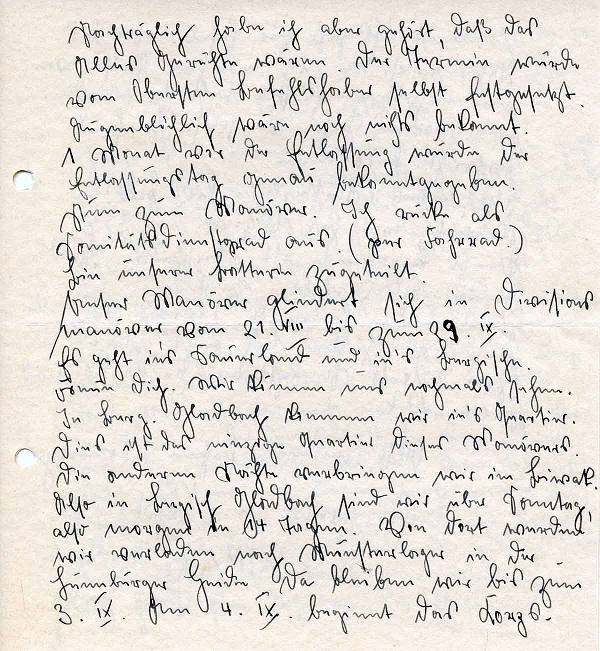 Nachträglich habe ich aber gehört, daß das
Alles Gerüchte wären. Der Termin würde
vom Obersten Befehlshaber selbst festgesetzt.
Augenblicklich wäre noch nichts bekannt.
1 Monat vor der Entlassung würde der
Entlassungstag genau bekanntgegeben.
Nun zum Manöver. Ich rücke als
Sanitätsdienstgrad aus. (per Fahrrad.)
Bin unserer Batterie zugeteilt.
Unser Manöver gliedert sich in Divisions
manöver vom 21. VIII bis zum 29. IX.
Es geht ins Sauerland und in's Bergische.
Freue Dich. Wir können uns nochmals sehen.
In Berg. Gladbach kommen wir in's Quartier.
Dies ist das einzige Quartier dieses Manövers.
Die anderen Nächte verbringen wir im Biwak.
Also in Bergisch Gladbach sind wir über Sonntag,
also morgen in 14 Tagen. Von dort werden
wir verladen nach Münsterlager in der
Lüneburger Heide. Da bleiben wir bis zum
3. IX. Am 4. IX. beginnt das Korps-